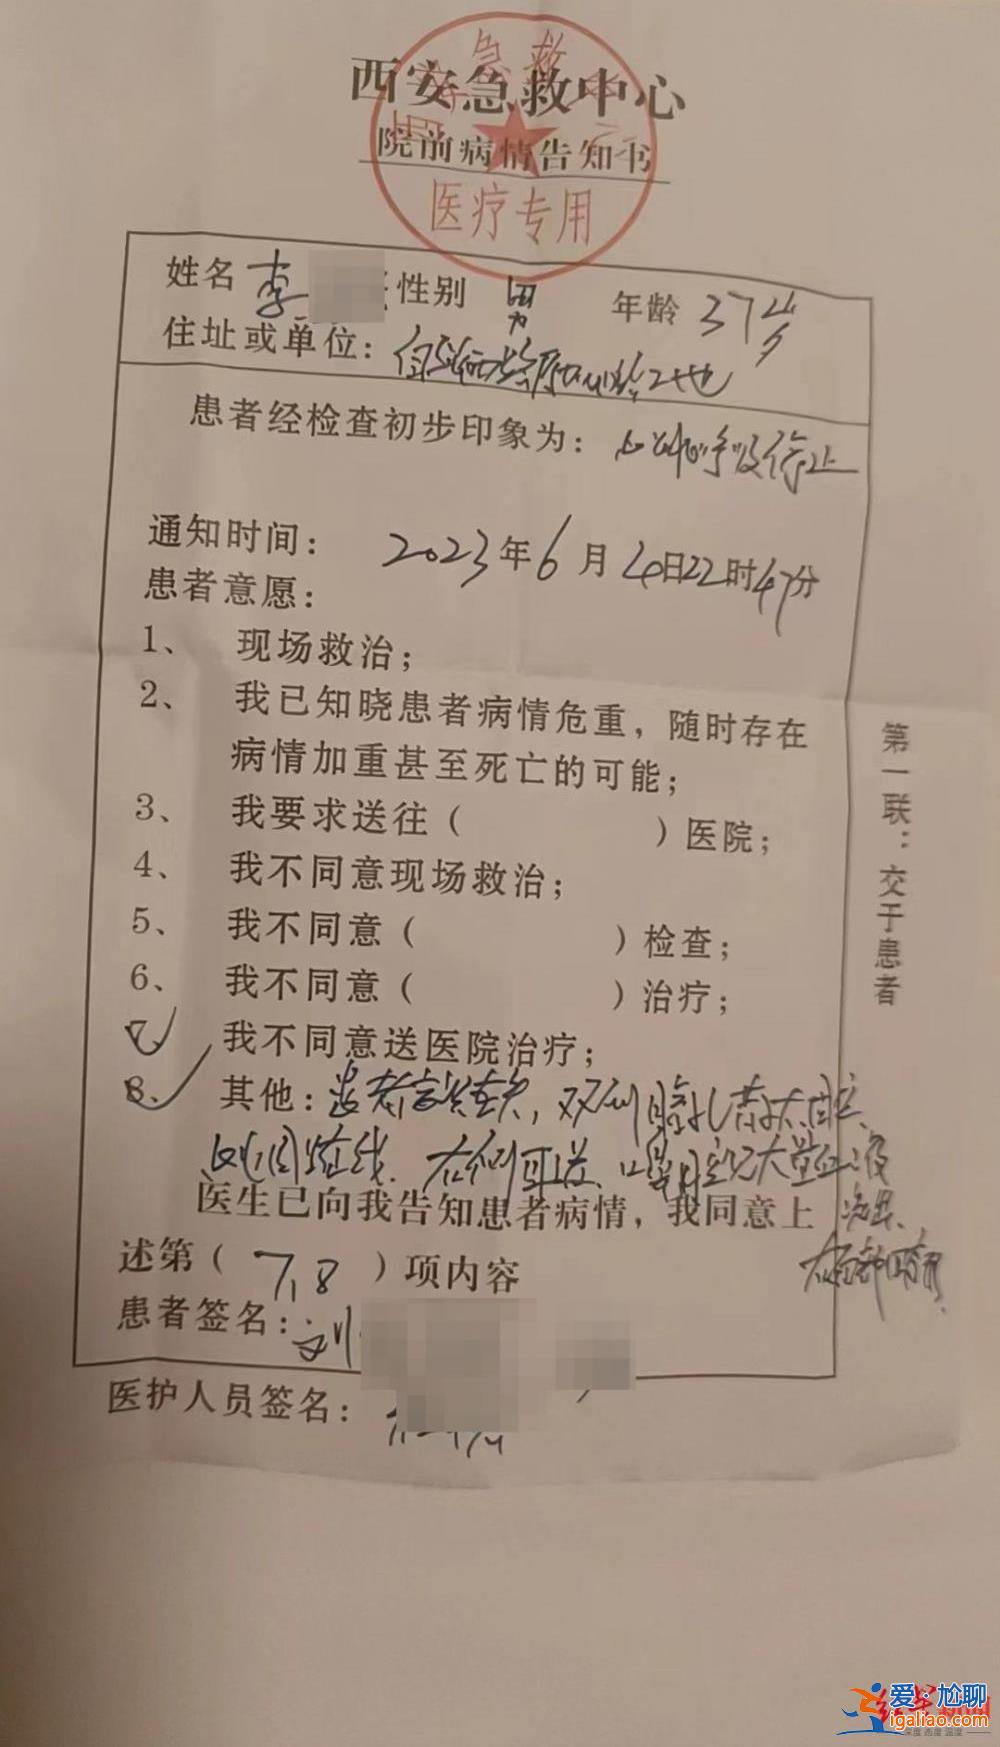 急救
西安急救中心
院前病情告知书
医疗专用
姓名 李 性别 男 年龄 37岁
住址或单位：
患者经检查初步印象为：心跳呼吸停止
通知时间： 2023年6月4日22时47分
患者意愿：
1、 现场救治；
2、 我已知晓患者病情危重，随时存在
病情加重甚至死亡的可能；
3、 我要求送往（ ）医院；
4、 我不同意现场救治；
5、 我不同意（ ）检查；
6、 我不同意（ ）治疗；
7、 我不同意送医院治疗；
8、 其他：患者意识丧失，双侧瞳孔散大固定、
右侧耳道、口鼻腔见大量血液
流出、
医生已向我告知患者病情，我同意上
述第（ 7、8 ）项内容
患者签名：刘
医护人员签名：
第一联：交于患者
爱·尬聊
igaliao.com
深度 态度 温度